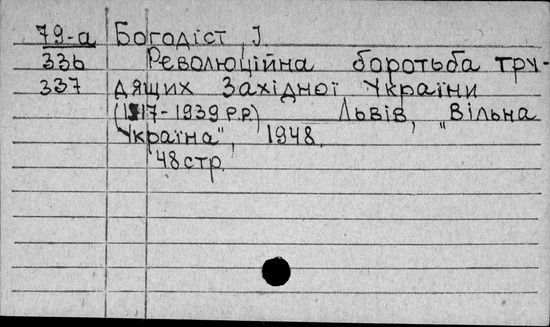 79-а Богодіст, І
33б Революційна боротьба тру-
337 дящих Західної України
(1917-1939 р.р.) Львів, „Вільна
Україна", 1948.
48 стр.